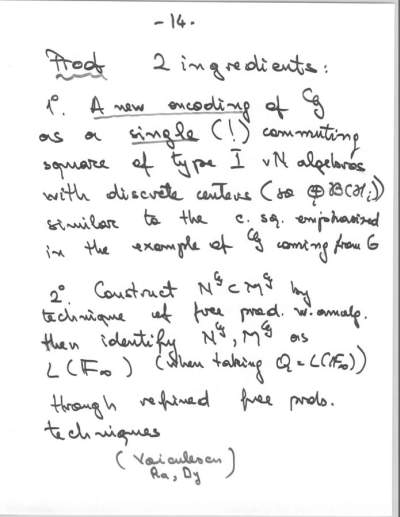 -14.
Proof 2 ingredients:
1°. A new encoding of 𝒢
as a single (!) commuting
square of type I vN algebras
with discrete centers (so ⊕ℬ(ℋi))
similar to the c. sq. emphasized
in the example of 𝒢 coming from G
2°. Construct N^𝒢 ⊂ M^𝒢 by
technique of free prod. w. amalg.
then identify N^𝒢, M^𝒢 as
L(𝔽∞) (when taking Q = L(𝔽∞))
through refined free prob.
techniques
(Voiculescu
Ra, Dy)